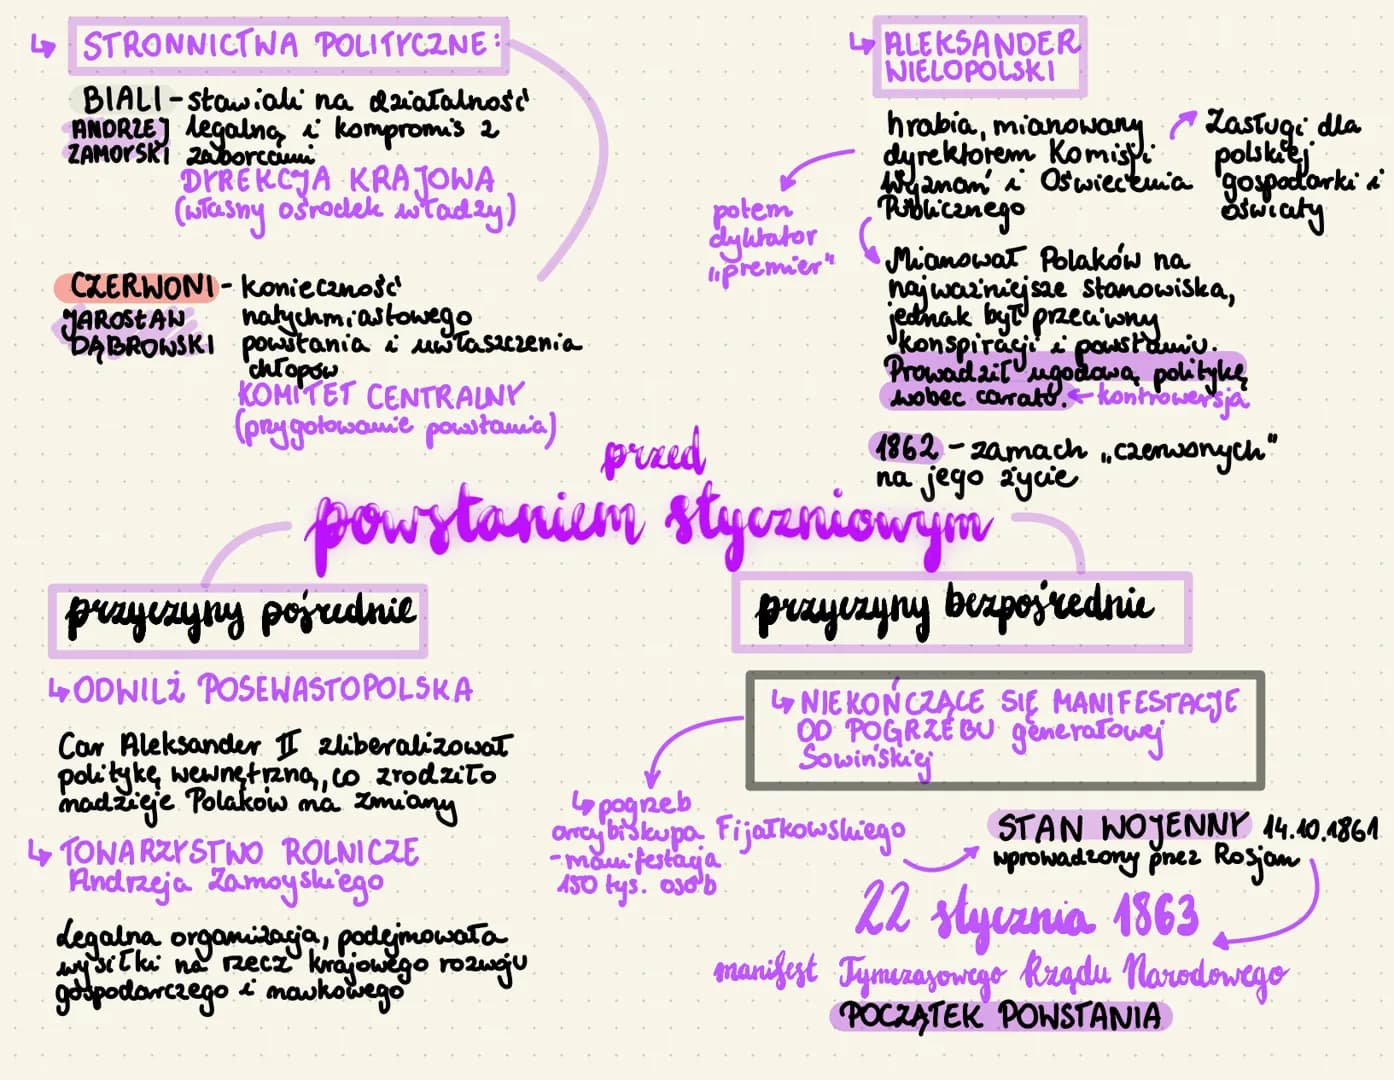 ↳ STRONNICTWA POLITYCZNE:
BIALI - stawiali na działalność
ANDRZEJ legalną i kompromis z
ZAMOYSKI zaborcami
DYREKCJA KRAJOWA
(własny ośrodek władzy)
CZERWONI - konieczność
JAROSŁAW natychmiastowego
DĄBROWSKI powstania i uwłaszczenia
chłopów
KOMITET CENTRALNY
(przygotowanie powstania)
↳ ALEKSANDER
WIELOPOLSKI
hrabia, mianowany
dyrektorem Komisji
Wyznań i Oświecenia
Publicznego
Zasługi dla
polskiej
gospodarki i
oświaty
potem
dyktator
„premier"
Mianował Polaków na
najważniejsze stanowiska,
jednak był przeciwny
konspiracji i powstaniu.
Prowadził ugodową politykę
wobec caratu. ← kontrowersja
1862 - zamach „czerwonych"
na jego życie
przed
powstaniem styczniowym
przyczyny pośrednie
↳ ODWILŻ POSEWASTOPOLSKA
Car Aleksander II zliberalizował
politykę wewnętrzną, co zrodziło
nadzieje Polaków na zmiany
↳ TOWARZYSTWO ROLNICZE
Andrzeja Zamoyskiego
Legalna organizacja, podejmowała
wysiłki na rzecz krajowego rozwoju
gospodarczego i naukowego
przyczyny bezpośrednie
↳ NIEKOŃCZĄCE SIĘ MANIFESTACJE
OD POGRZEBU generałowej
Sowińskiej
↳ pogrzeb
arcybiskupa Fijałkowskiego
- manifestacja
150 tys. osób
STAN WOJENNY 14.10.1861
wprowadzony przez Rosjan
22 stycznia 1863
manifest Tymczasowego Rządu Narodowego
POCZĄTEK POWSTANIA